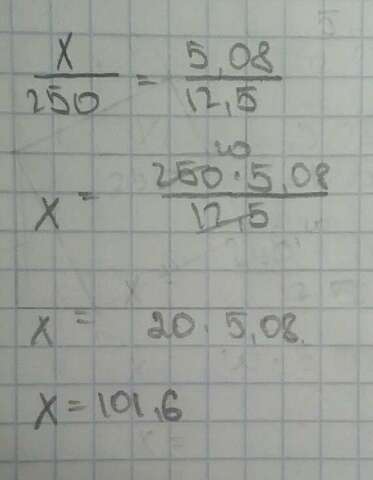 X / 250 = 5,08 / 12,5
20
X = 250 · 5,08 / 12,5
X = 20 · 5,08
X = 101,6